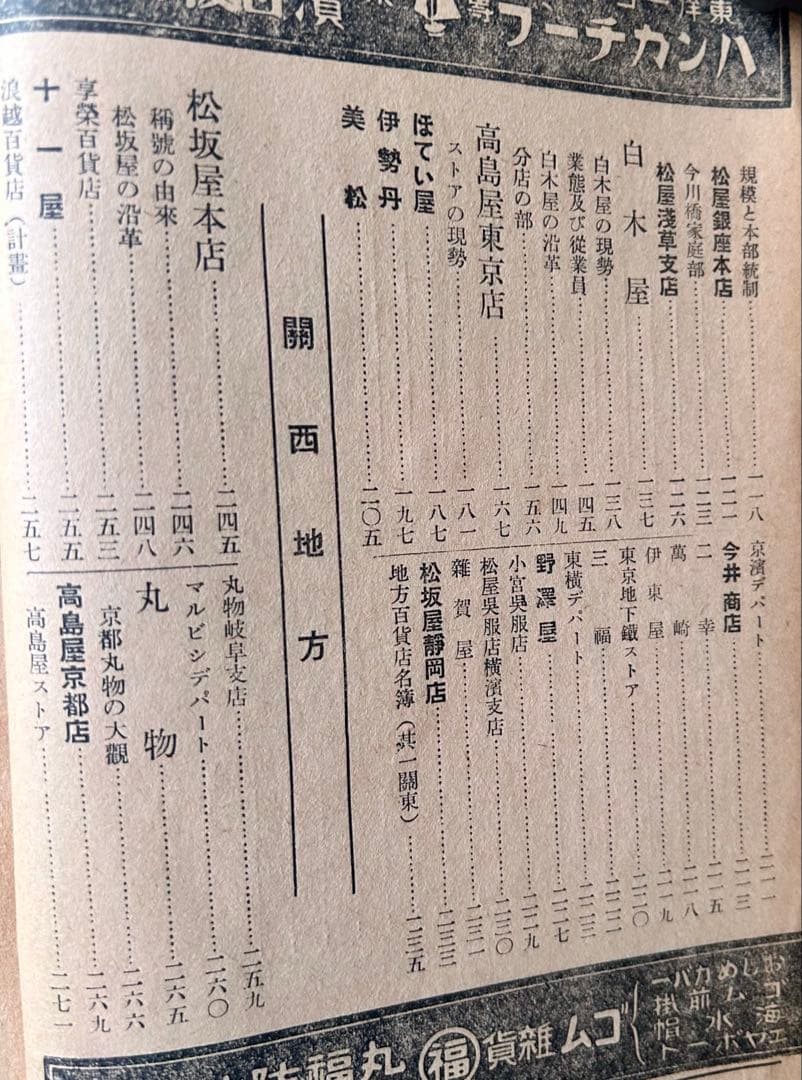 ハンカチーフ
規模と本部統制……一一八
松屋銀座本店……一二一
今川橋家庭部……一二三
松屋淺草支店……一二六
白木屋……一三七
白木屋の現勢……一三八
業態及び從業員……一四五
白木屋の沿革……一四九
分店の部……一五六
高島屋東京店……一六七
ストアの現勢……一八一
ほてい屋……一八七
伊勢丹……一九七
美松……二〇五
京濱デパート……二一一
今井商店……二一三
二幸……二一五
萬崎……二一八
伊東屋……二一九
東京地下鐵ストア……二二〇
三福……二二二
東横デパート……二二三
野澤屋……二二七
小宮呉服店……二二九
松屋呉服店横濱支店……二三〇
雜賀屋……二三一
松坂屋靜岡店……二三三
地方百貨店名簿(其一關東)……二三五
關西地方
松坂屋本店……二四五
稱號の由來……二四六
松坂屋の沿革……二四八
享榮百貨店……二五三
十一屋……二五五
浪越百貨店(計畫)……二五七
丸物岐阜支店……二五九
マルビシデパート……二六〇
丸物……二六五
京都丸物の大觀……二六六
高島屋京都店……二六九
高島屋ストア……二七一
ゴム雜貨 福 丸福